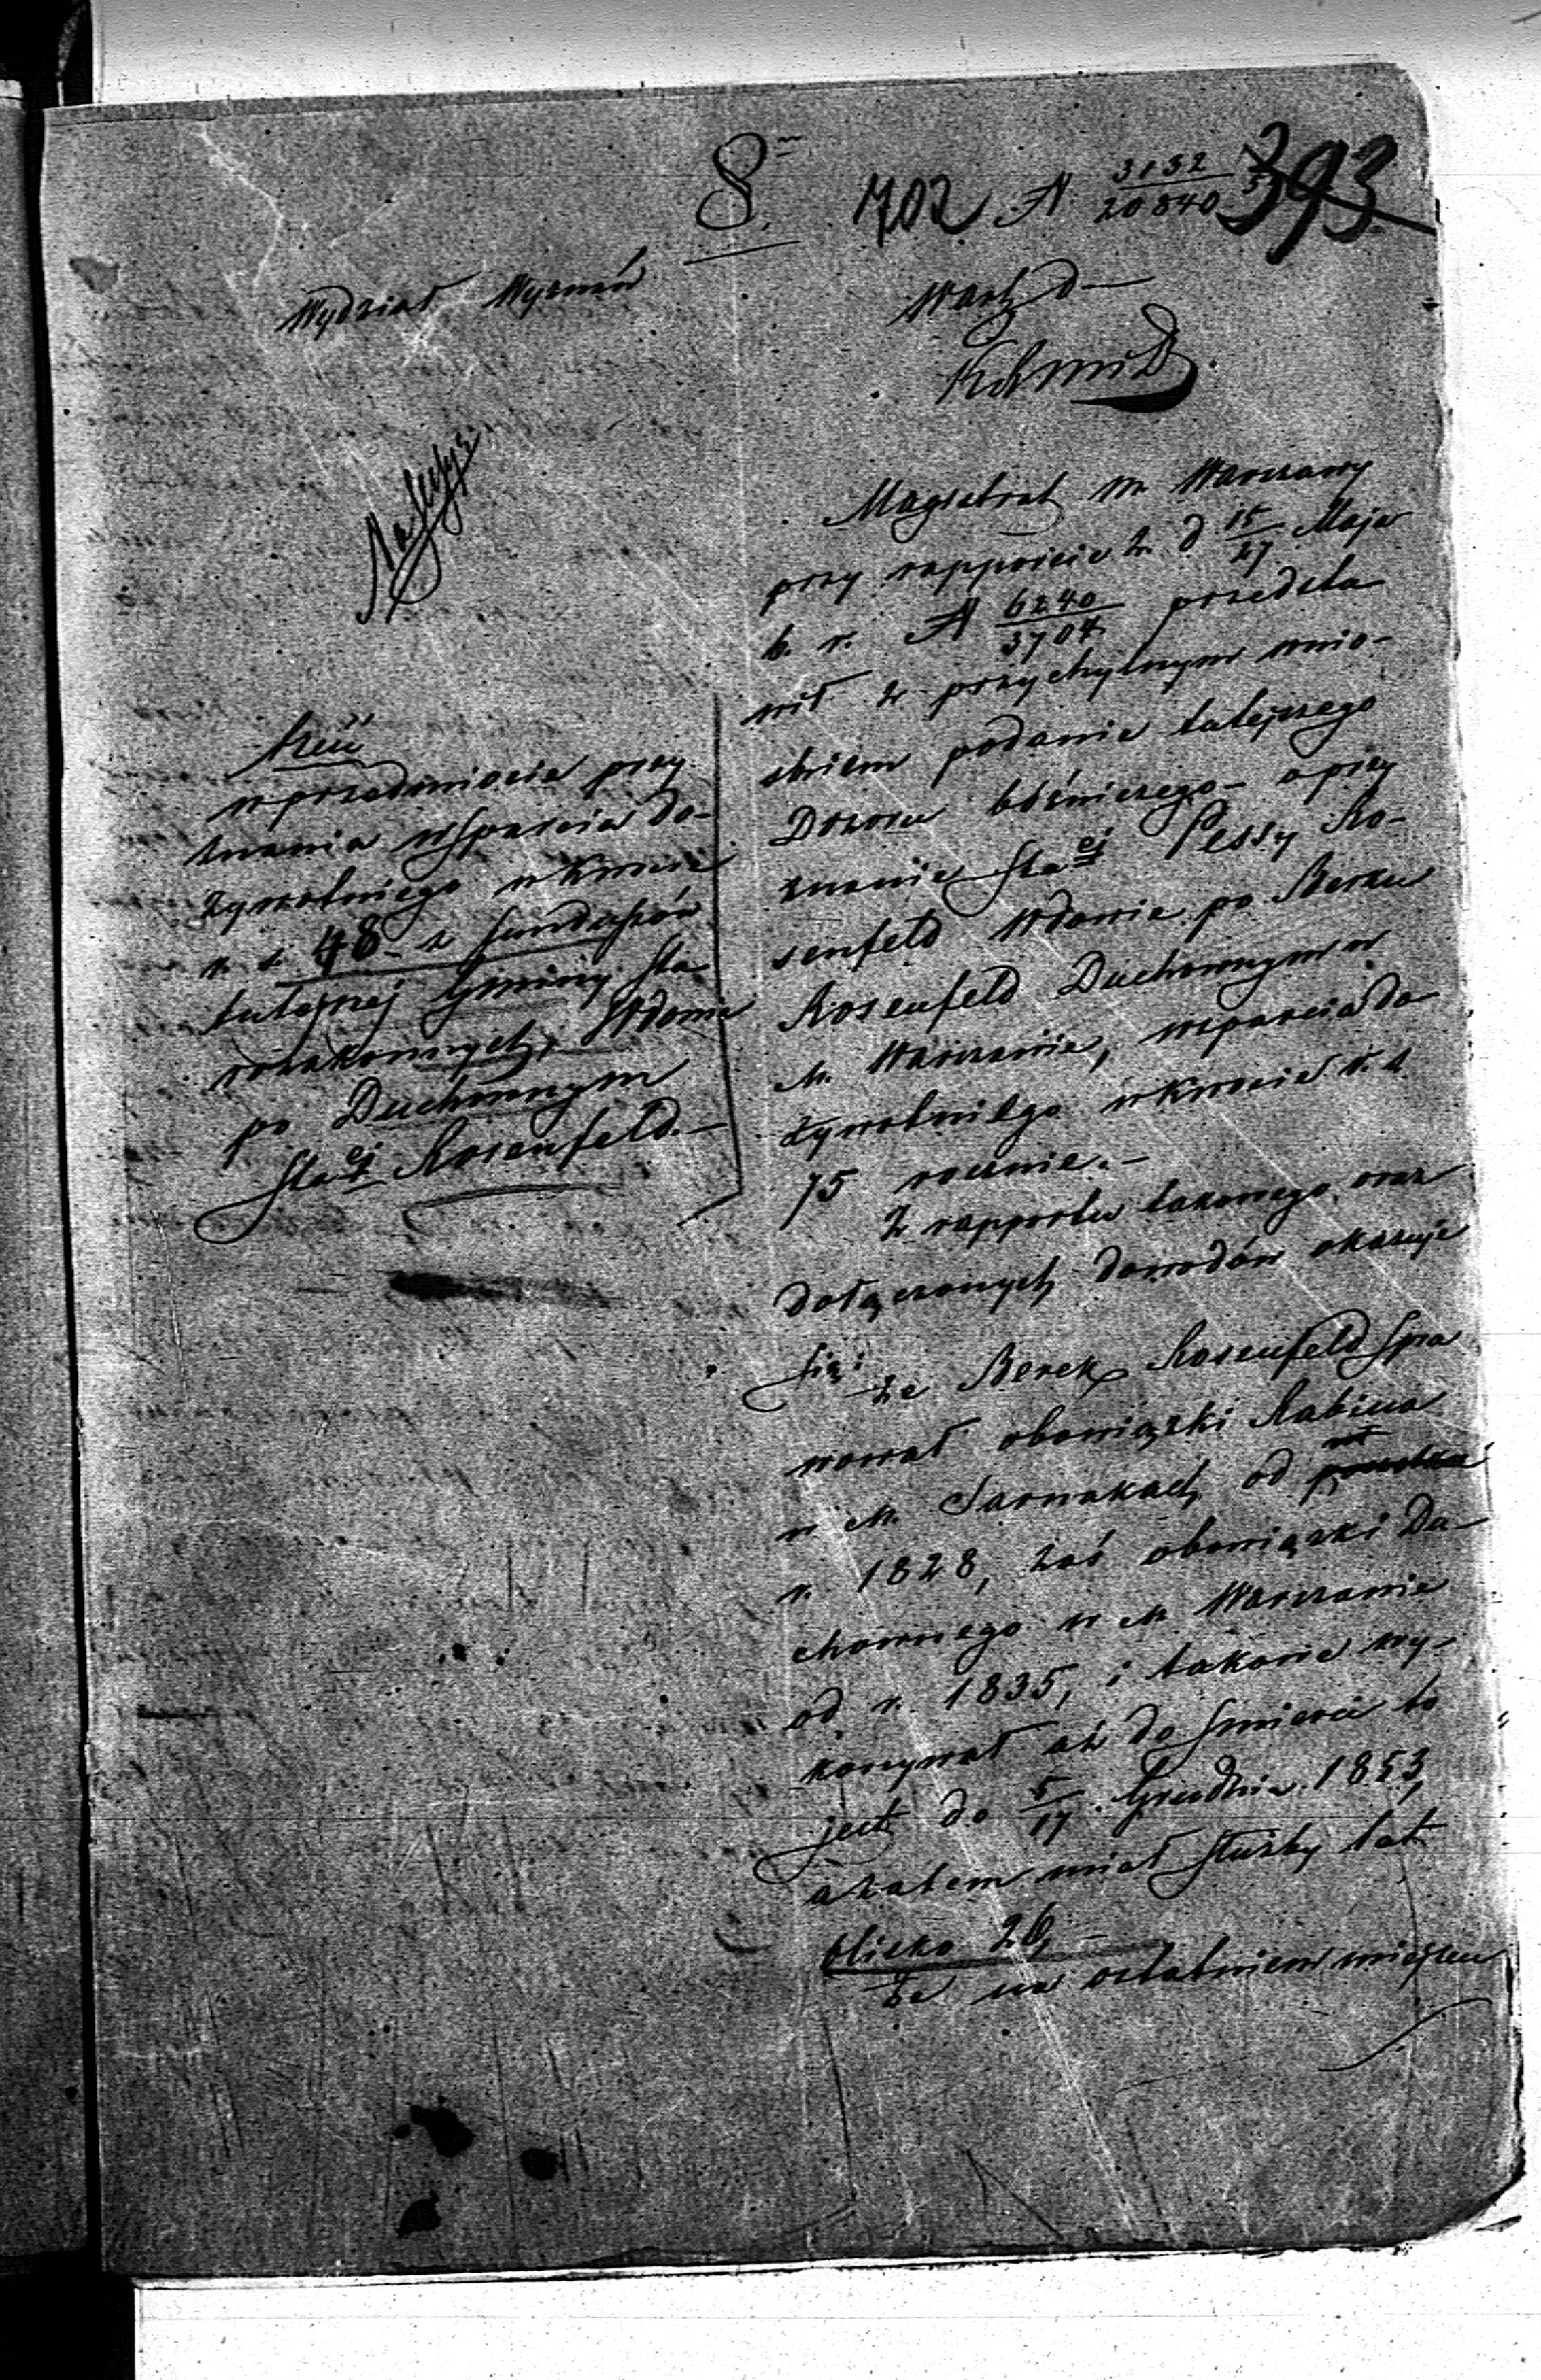 8.
702 N 3132/20840 393
Wydział Wyznań
Magistrat m. Warszawy
przy rapporcie z d. 15/27 Maja
b. r. N 6240/3704 przedsta
wił z przychylnym wnio-
skiem podanie tutejszego
Dozoru bóźniczego o przy
znanie Sta ej Pessy Ro-
senfeld Wdowie po Berku
Rosenfeld Duchownym w
M. Warszawie, wsparcia do
żywotniego w kwocie r. s.
75 rocznie. —
Z rapportu takowego oraz
dołączonych dowodów okazuje
się:
że Berek Rosenfeld spra
wował obowiązki Rabina
w M. Sarnakach od
r. 1828, zaś obowiązki Du-
chownego w M. Warszawie
od r. 1835, i takowe wy-
konywał aż do śmierci to
jest do 5/17 Grudnia 1853,
a zatem miał służby lat
blisko 26, —
że na ostatniem miejscu
w przedmiocie przy
znania wsparcia do-
żywotniego w kwocie
r. s. 48 z funduszów
tutejszej Gminy Sta
rozakonnych, Wdowie
po Duchownym
Sta ej Rosenfeld. —